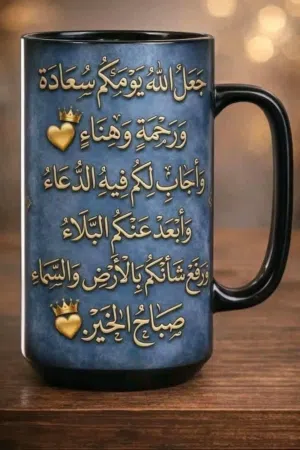 جَعَلَ اللهُ يَوْمَكُمْ سَعَادَة
وَرَحْمَةٍ وَهَنَاءٍ
وَأَجَابَ لَكُمْ فِيهِ الدُّعَاءُ
وَأَبْعَدَ عَنْكُم البَّلَاءُ
وَرَفَعَ شَأْنَكُمْ بِالْأَرْضِ وَالسَّمَاءِ
صَبَاحُ الخَيْرِ